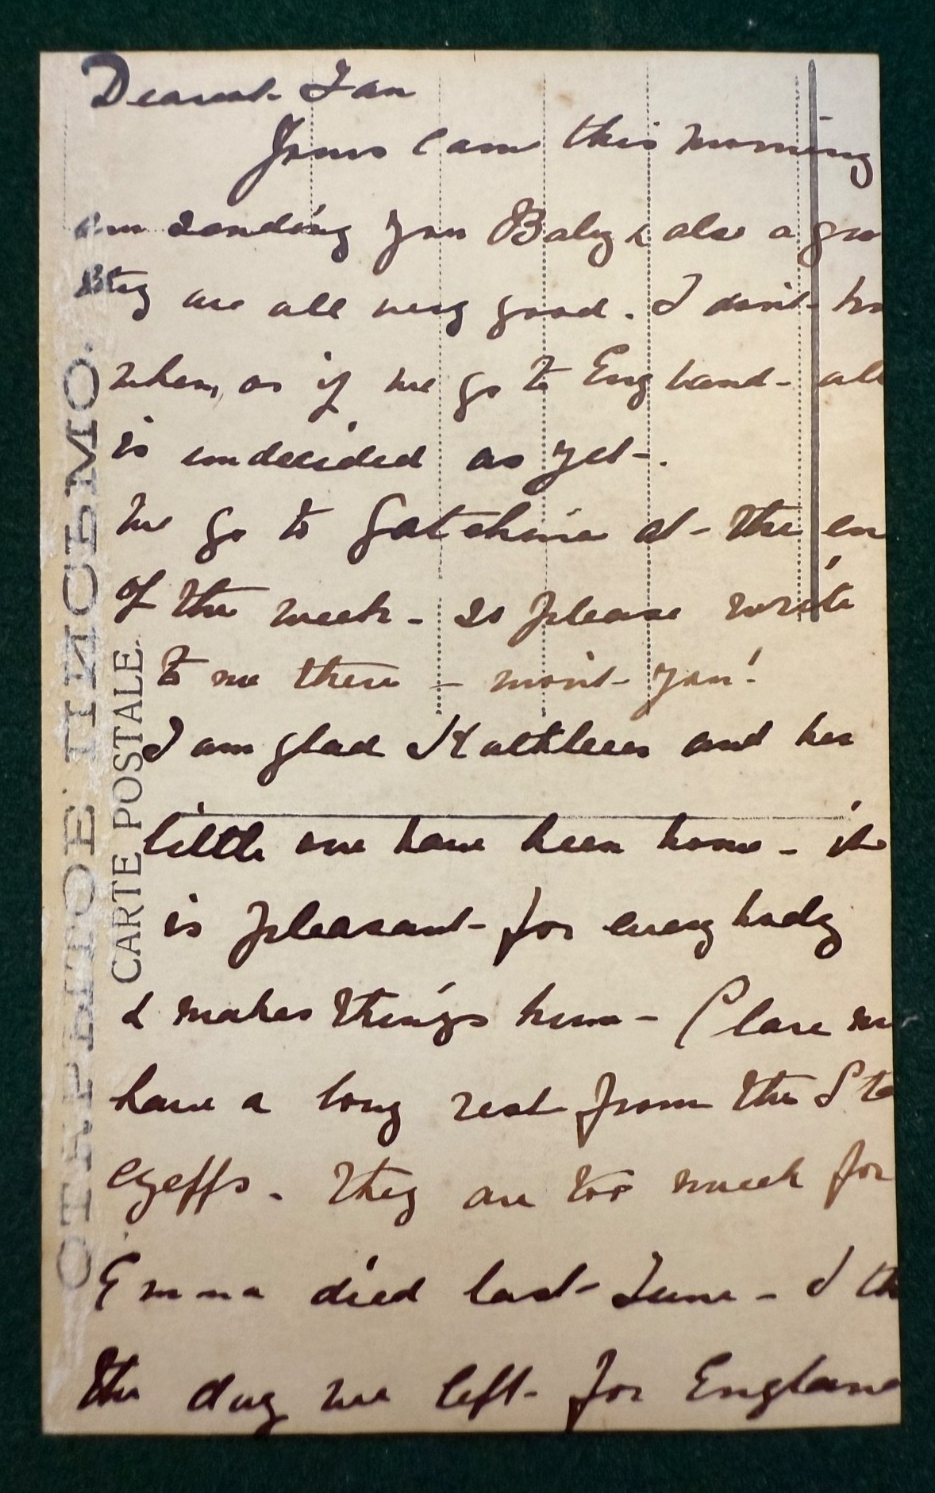 Dearest Fan
Yours came this morning
am sending you Baby & also a gro
they are all very good. I don't kn
when, or if we go to England - all
is undecided as yet -.
We go to Gatchina at - the en
of the week - so please write
to me there - won't you!
I am glad Kathleen and her
little one have been home - it
is pleasant - for everybody
& makes things hum - Clare
have a long rest from the Sto
eyeffs - they are too much for
Emma died last June - I th
the day we left - for England
ОТКРЫТОЕ ПИСЬМО.
CARTE POSTALE.